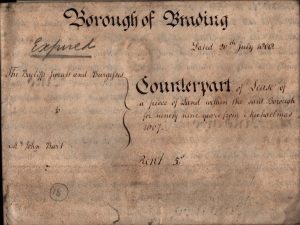 Borough of Brading
Expired
Dated 30th July
The Bayliffs Jurats and Burgesses
to
Mr John Burt
Counterpart of Lease of
a piece of Land within the said Borough
for ninety nine years from Michaelmas
1807.
Rent